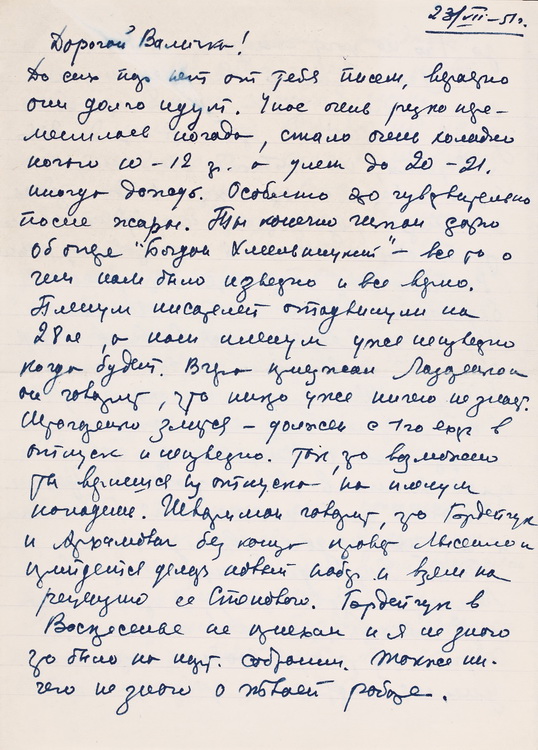 23/VII-51г.
Дорогой Валичка!
До сих пор нет от тебя писем, видно
они долго идут. У нас очень резко пере-
менилась погода, стало очень холодно
ночью 10-12 гр. а днем до 20-21.
иногда дождь. Особенно это чувствительно
после жары. Ты конечно читал
об опере "Богдан Хмельницкий" - все то о
чем нам было известно и все верно.
Пленум писателей отодвинули на
28ое, а наш пленум уже неизвестно
когда будет. Вчера приезжал
он говорит, что никто уже ничего не знает.
злится - должен с 1го ехать в
отпуск и неизвестно. Так, что возможно
ты вернешься из отпуска и на пленум
попадешь. говорит, что Гордейчук
и Архимович без конца правят
придется делать новый набор и взяли на
рецензию ее. Гордейчук в
Воскресенье не приехал и я не знаю
что было на парт. собрании. Также ни-
чего не знаю о твоей работе.